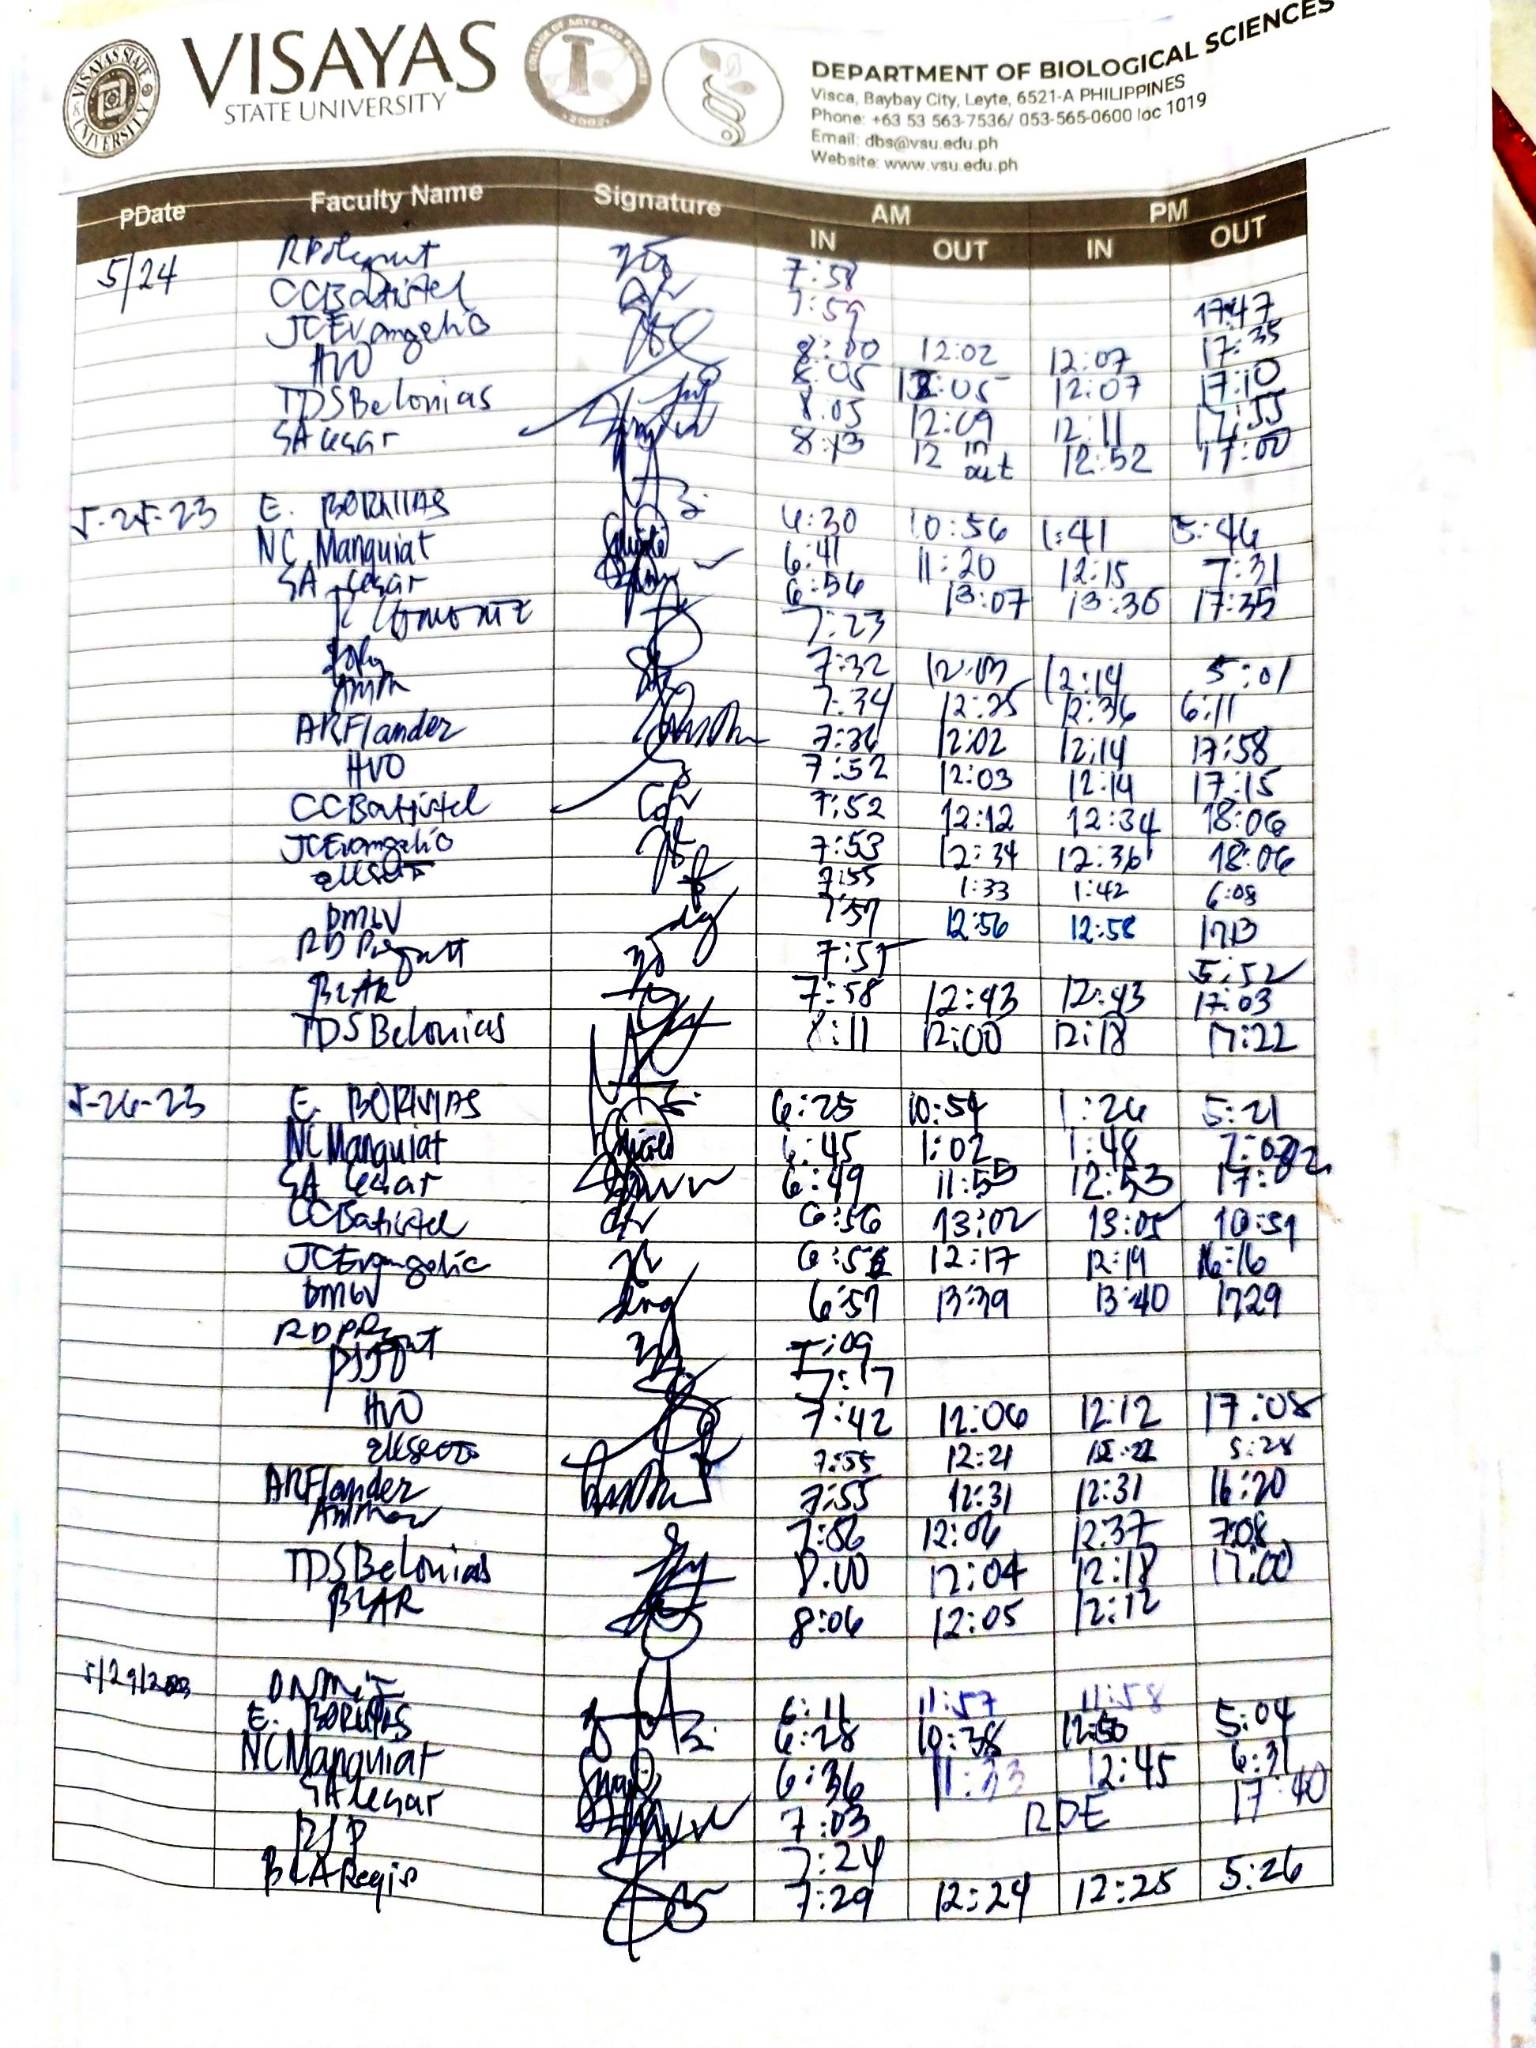 VISAYAS
STATE UNIVERSITY
DEPARTMENT OF BIOLOGICAL SCIENCES
Visca, Baybay City, Leyte, 6521-A PHILIPPINES
Phone: +63 53 563-7536/ 053-565-0600 loc 1019
Email: dbs@vsu.edu.ph
Website: www.vsu.edu.ph
PDate Faculty Name Signature AM PM
IN OUT IN OUT
5/24 7:58
CCBatistel 7:59 17:47
JCEvangelio 8:00 12:02 12:07 17:35
HVO 8:05 12:05 12:07 17:10
TDSBelonias 8:05 12:09 12:11 17:55
SA Cesar 8:13 12 in out 12:52 17:00
5-25-23 E. BORNIAS 6:30 10:56 1:41 5:46
NC Manquiat 6:41 11:20 12:15 7:31
SA Cesar 6:56 13:07 13:36 17:35
7:23
7:32 12:03 12:14 5:01
7:34 12:25 12:36 6:11
ARFlander 7:36 12:02 12:14 17:58
HVO 7:52 12:03 12:14 17:15
CCBatistel 7:52 12:12 12:34 18:06
JCEvangelio 7:53 12:34 12:36 18:06
7:55 1:33 1:42 6:08
DMGV 7:57 12:56 12:58 1713
7:57 5:52
BLAR 7:58 12:43 12:43 17:03
TDSBelonias 8:11 12:00 12:18 17:22
5-26-23 E. BORNIAS 6:25 10:54 1:26 5:21
NCManquiat 6:45 1:02 1:48
SA Cesar 6:49 11:55 12:53 17:02
CCBatistel 6:56 13:02 13:05
JCEvangelio 12:17 12:19 16:16
DMGV 6:57 13:39 13:40 1729
7:09
7:17
HVO 7:42 12:06 12:12 17:08
7:55 12:21 12:22 5:28
ARFlander 7:55 12:31 12:31 16:20
12:06 12:37 7:08
TDSBelonias 8:00 12:04 12:18 17:00
BLAR 8:06 12:05 12:12
5/29/2023 6:11 11:57 11:58
E. BORNIAS 6:28 10:38 12:50 5:04
NCManquiat 6:36 11:33 12:45 6:31
SA Cesar 7:03 RDE 17:40
7:24
BLARegis 7:29 12:24 12:25 5:26